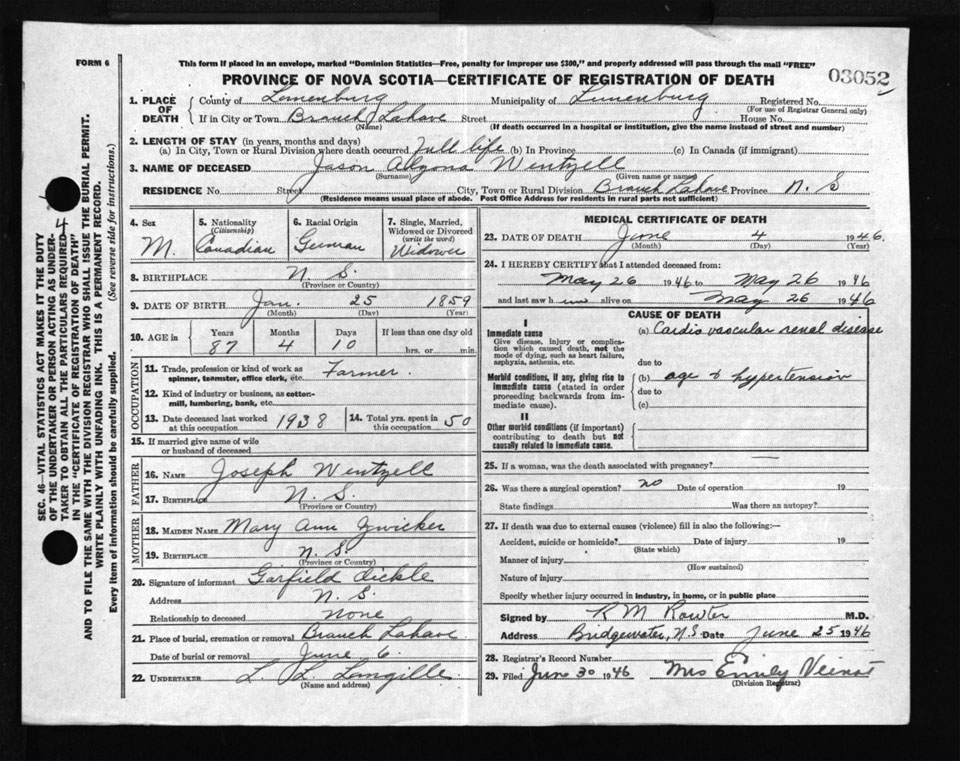 FORM 6
This form if placed in an envelope, marked "Dominion Statistics—Free, penalty for improper use $300," and properly addressed will pass through the mail "FREE"
PROVINCE OF NOVA SCOTIA—CERTIFICATE OF REGISTRATION OF DEATH
03052
1. PLACE OF DEATH
County of Lunenburg Municipality of Lunenburg Registered No.
(For use of Registrar General only)
If in City or Town Branch Lahave Street House No.
(Name) (If death occurred in a hospital or institution, give the name instead of street and number)
2. LENGTH OF STAY (in years, months and days)
(a) In City, Town or Rural Division where death occurred full life (b) In Province (c) In Canada (if immigrant)
3. NAME OF DECEASED Jason Wentzell
(Surname) (Given name or names)
RESIDENCE No. Street City, Town or Rural Division Branch Lahave Province N. S
(Residence means usual place of abode. Post Office Address for residents in rural parts not sufficient)
4. Sex M.
5. Nationality (Citizenship) Canadian
6. Racial Origin German
7. Single, Married, Widowed or Divorced (write the word) Widower
8. BIRTHPLACE N. S.
(Province or Country)
9. DATE OF BIRTH Jan. 25 1859
(Month) (Day) (Year)
10. AGE in Years 87 Months 4 Days 10 If less than one day old hrs. or min.
OCCUPATION
11. Trade, profession or kind of work as spinner, teamster, office clerk, etc. Farmer.
12. Kind of industry or business, as cotton-mill, lumbering, bank, etc.
13. Date deceased last worked at this occupation 1938
14. Total yrs. spent in this occupation 50
15. If married give name of wife or husband of deceased
FATHER
16. NAME Joseph Wentzell
17. BIRTHPLACE N. S.
(Province or Country)
MOTHER
18. MAIDEN NAME Mary Ann Zwicker
19. BIRTHPLACE N. S.
(Province or Country)
20. Signature of informant Garfield
Address N. S.
Relationship to deceased None
21. Place of burial, cremation or removal Branch Lahave
Date of burial or removal June 6.
22. UNDERTAKER L. L. Langille.
(Name and address)
MEDICAL CERTIFICATE OF DEATH
23. DATE OF DEATH June 4 1946.
(Month) (Day) (Year)
24. I HEREBY CERTIFY that I attended deceased from:
May 26 1946 to May 26 1946
and last saw him alive on May 26 1946
CAUSE OF DEATH
I
Immediate cause
Give disease, injury or complication which caused death, not the mode of dying, such as heart failure, asphyxia, asthenia, etc.
(a) Cardio vascular renal disease
due to
Morbid conditions, if any, giving rise to immediate cause (stated in order proceeding backwards from immediate cause).
(b) age & hypertension
due to
(c)
II
Other morbid conditions (if important) contributing to death but not causally related to immediate cause.
25. If a woman, was the death associated with pregnancy?
26. Was there a surgical operation? no Date of operation 19
State findings Was there an autopsy?
27. If death was due to external causes (violence) fill in also the following:—
Accident, suicide or homicide? Date of injury 19
(State which)
Manner of injury
(How sustained)
Nature of injury
Specify whether injury occurred in industry, in home, or in public place
Signed by R M Rowter M.D.
Address Bridgewater, N.S. Date June 25 1946
28. Registrar's Record Number
29. Filed June 30 1946 Mrs Emily Veinot
(Division Registrar)
SEC. 46—VITAL STATISTICS ACT MAKES IT THE DUTY
OF THE UNDERTAKER OR PERSON ACTING AS UNDER-
TAKER TO OBTAIN ALL THE PARTICULARS REQUIRED
IN THE "CERTIFICATE OF REGISTRATION OF DEATH"
AND TO FILE THE SAME WITH THE DIVISION REGISTRAR WHO SHALL ISSUE THE BURIAL PERMIT.
WRITE PLAINLY WITH UNFADING INK. THIS IS A PERMANENT RECORD.
Every item of Information should be carefully supplied. (See reverse side for instructions.)
4